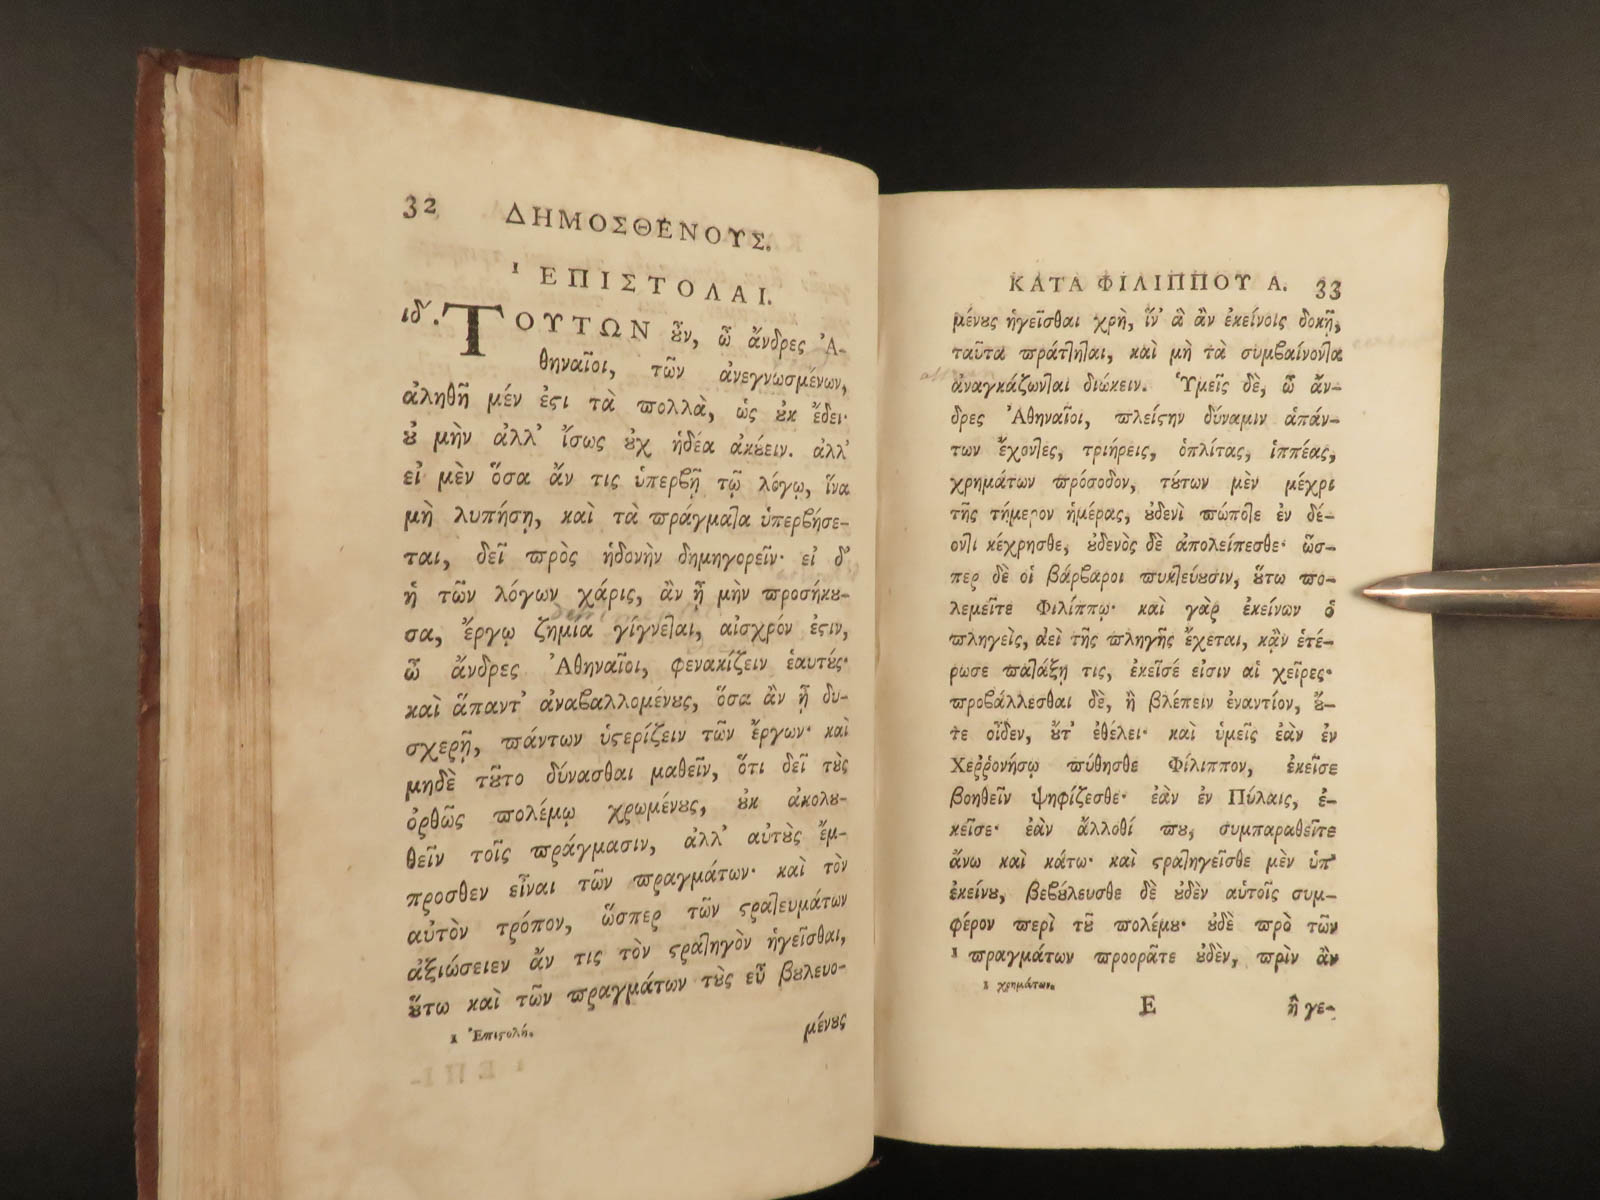 32 ΔΗΜΟΣΘΕΝΟΥΣ.
¹ ΕΠΙΣΤΟΛΑΙ.
ιδʹ. ΤΟΥΤΩΝ ȣ̃ν, ὦ ἄνδρες Ἀ-
θηναῖοι, τῶν ἀνεγνωσμένων,
ἀληθῆ μέν ἐϛι τὰ πολλὰ, ὡς ȣ̓κ ἔδει·
ȣ̓ μὴν ἀλλ' ἴσως ȣ̓χ ἡδέα ἀκȣ́ειν. ἀλλ'
εἰ μὲν ὅσα ἄν τις ὑπερβῇ τῷ λόγῳ, ἵνα
μὴ λυπήσῃ, καὶ τὰ πράγματα ὑπερβήσε-
ται, δεῖ πρὸς ἡδονὴν δημηγορεῖν· εἰ δ'
ἡ τῶν λόγων χάρις, ἂν ᾖ μὴν προσήκȣ-
σα, ἔργῳ ζημία γίγνεται, αἰσχρόν ἐϛιν,
ὦ ἄνδρες Ἀθηναῖοι, φενακίζειν ἑαυτȣ́ς·
καὶ ἅπαντ' ἀναβαλλομένȣς, ὅσα ἂν ᾖ δυ-
σχερῆ, πάντων ὑϛερίζειν τῶν ἔργων· καὶ
μηδὲ τȣ̃το δύνασθαι μαθεῖν, ὅτι δεῖ τȣ̀ς
ὀρθῶς πολέμῳ χρωμένȣς, ȣ̓κ ἀκολȣ-
θεῖν τοῖς πράγμασιν, ἀλλ' αὐτȣ̀ς ἔμ-
προσθεν εἶναι τῶν πραγμάτων· καὶ τὸν
αὐτὸν τρόπον, ὥσπερ τῶν ϛρατευμάτων
ἀξιώσειεν ἄν τις τὸν ϛρατηγὸν ἡγεῖσθαι,
ȣ̔́τω καὶ τῶν πραγμάτων τȣ̀ς εὖ βȣλευο-
1 Ἐπιϛολή.
μένȣς
ΚΑΤΑ ΦΙΛΙΠΠΟΥ Α. 33
μένȣς ἡγεῖσθαι χρὴ, ἵν' ἃ ἂν ἐκείνοις δοκῇ,
ταῦτα πράττηται, καὶ μὴ τὰ συμβαίνοντα
ἀναγκάζωνται διώκειν. Ὑμεῖς δὲ, ὦ ἄν-
δρες Ἀθηναῖοι, πλείϛην δύναμιν ἁπάν-
των ἔχοντες, τριήρεις, ὁπλίτας, ἱππέας,
χρημάτων πρόσοδον, τȣ́των μὲν μέχρι
τῆς τήμερον ἡμέρας, ȣ̓δενὶ πώποτε ἐν δέ-
οντι κέχρησθε, ȣ̓δενὸς δὲ ἀπολείπεσθε· ὥσ-
περ δὲ οἱ βάρβαροι πυκτεύȣσιν, ȣ̔́τω πο-
λεμεῖτε Φιλίππῳ· καὶ γὰρ ἐκείνων ὁ
πληγεὶς, ἀεὶ τῆς πληγῆς ἔχεται, κᾂν ἑτέ-
ρωσε πατάξῃ τις, ἐκεῖσέ εἰσιν αἱ χεῖρες·
προβάλλεσθαι δὲ, ἢ βλέπειν ἐναντίον, ȣ̓́-
τε οἶδεν, ȣ̓́τ' ἐθέλει· καὶ ὑμεῖς ἐὰν ἐν
Χεῤῥονήσῳ πύθησθε Φίλιππον, ἐκεῖσε
βοηθεῖν ψηφίζεσθε· ἐὰν ἐν Πύλαις, ἐ-
κεῖσε· ἐὰν ἄλλοθί πȣ, συμπαραθεῖτε
ἄνω καὶ κάτω· καὶ ϛρατηγεῖσθε μὲν ὑπ'
ἐκείνȣ, βεβȣ́λευσθε δὲ ȣ̓δὲν αὐτοῖς συμ-
φέρον περὶ τȣ̃ πολέμȣ· ȣ̓δὲ πρὸ τῶν
¹ πραγμάτων προορᾶτε ȣ̓δὲν, πρὶν ἂν
1 χρημάτων.
E ἢ γε-